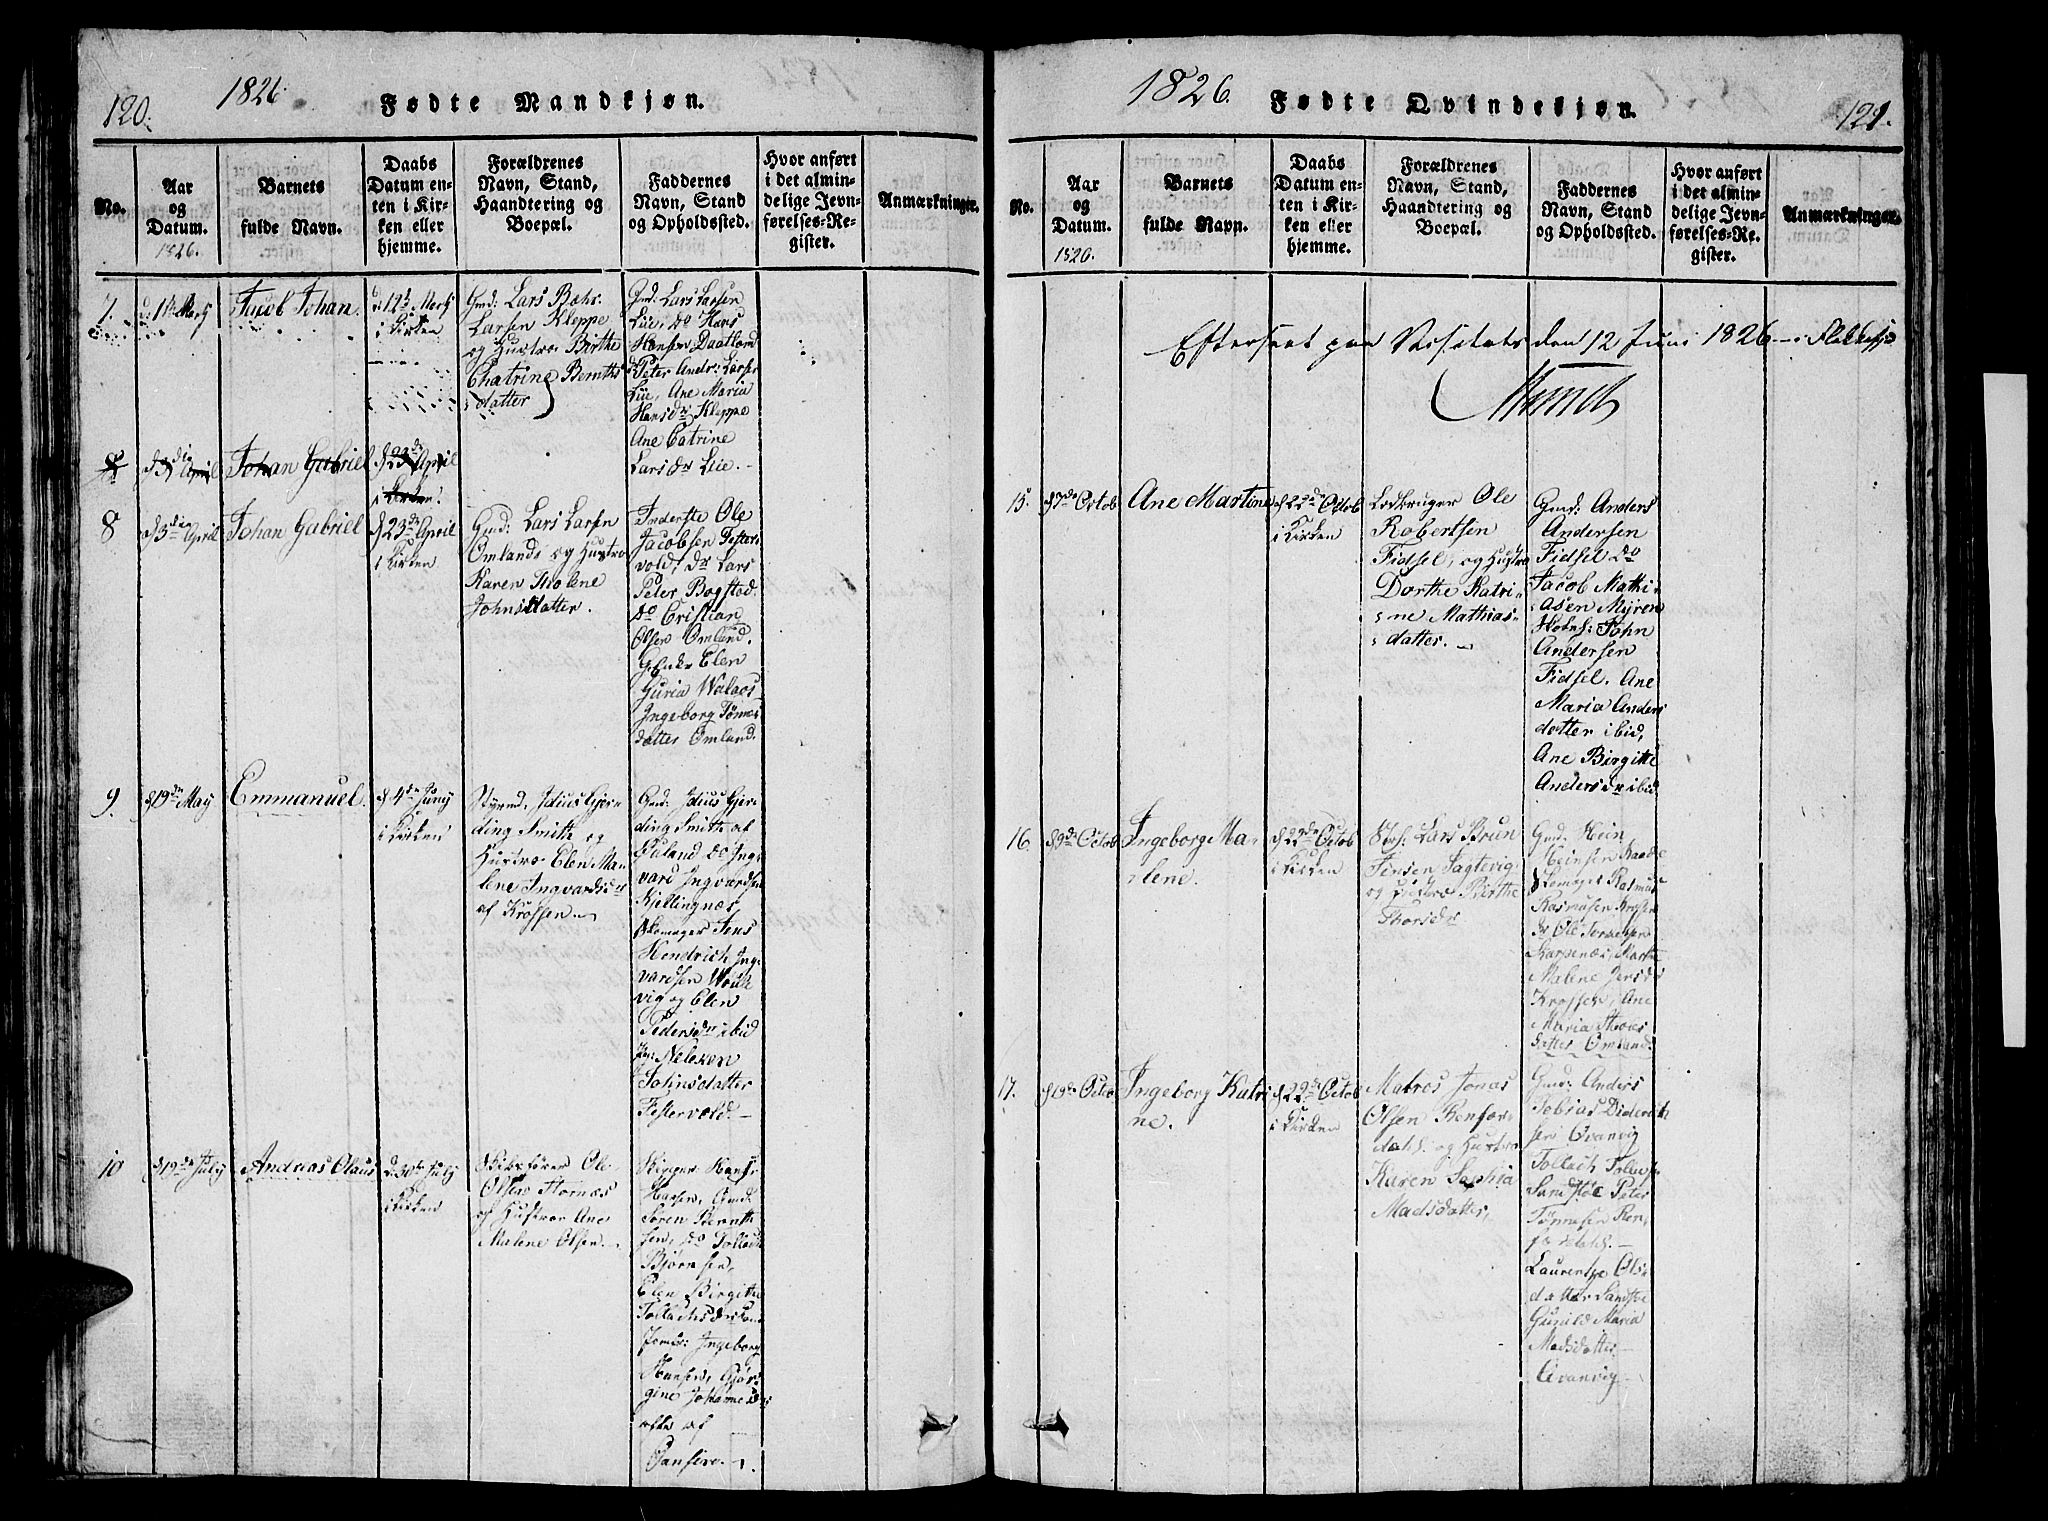 120.
1826.
Fødte Mandkjøn.
No.
Aar
og
Datum.
1826.
Barnets
fulde Navn.
Daabs
Datum en-
ten i Kir-
ken eller
hjemme.
Forældrenes
Navn, Stand,
Haandtering og
Boepæl.
Faddernes
Navn, Stand
og Opholdssted.
Hvor anført
i det almin-
delige Jevn-
førelses-Re-
gister.
Anmærkninger.
7.
Jacob Johan.
i Kirken
Gmd: Lars Bæhr
Larsen Kleppe
og Hustroe Birthe
Chatrine Bernths
datter
Gmd: Lars Larsen
Lüe, do Hans
Hansen Daatland
do Peter Andr: Larsen
Lüe, Ane Maria
Hansdr Kleppe
Ane Catrine
Larsdr Lüe.
8
d 3die April
Johan Gabriel
d 23de April
i Kirken.
8
d 3die April
Johan Gabriel
d 23de April
i Kirken
Gmd: Lars Larsen
Omland og Hustroe
Karen Tholene
Johnsdatter.
Ole
Jacobsen Fester-
vold, do Lars
Peter Bogsted.
do Cristian
Olsen Omland.
Elen
Guria
Ingeborg Tønnes
datter Omland.
9.
d 19de May
Emmanuel.
d 4de Juny
i Kirken
Idius Gjer-
ding Smith og
Hustroe Elen Ma-
lene Ingvardsdr
af Krossen
Gmd: Idius Gjer-
ding Smith af
do Ing-
vard Ingvardsen
Kjellingnæs
Skomager Jens
Hendrich Ing-
vardsen
vig og Elen
Pedersdr ibid
Johnsdatter
Festervold.
10
d 12de July
Andreas Olaus
d. 30te July
i Kirken
Skibsfører Ole
Olsen
og Hustroe Ane
Malene Olsen.
Skipper Hans
Hansen, Gmd:
Søren Bernth
sen, do Tollach
Bjørnsen,
Elen Birgithe
Ingeborg
Hansen,
gine Johanne
af
1826.
Fødte Qvindekjøn.
121.
No.
Aar
og
Datum.
1826.
Barnets
fulde Navn.
Daabs
Datum en-
ten i Kir-
ken eller
hjemme.
Forældrenes
Navn, Stand,
Haandtering og
Boepæl.
Faddernes
Navn, Stand
og Opholdssted.
Hvor anført
i det almin-
delige Jevn-
førelses-Re-
gister.
Anmærkninger.
Efterseet paa Visitats den 12 Juni 1826 i Flekkefjd
Munch
15.
d 7de Octob
Ane Martine
d 22de Octob
i Kirken
Ole
Robertsen
Fidsel, og Hustroe
Dorthe Katri-
ne Mathias-
datter.
Gmd: Anders
Andersen
Fidsel do
Jacob Mathi-
asen Myren
John
Andersen
Fidsel. Ane
Maria Anders
datter ibid,
Ane Birgitte
Andersdr ibid
16
d 9de Octob
Ingeborg Ma-
lene.
d 22de Octob
i Kirken
Lars Brun
Jensen
og Hustroe Birthe
Thorsdr
Gmd: Hein
Heinsen
Skomager Rasmus
Rasmusen Krossen
do Ole
Marthe
Malene Jensdr
Krossen, Ane
Maria Thores
datter Omland.
17.
d 19de Octob
Ingeborg Katri
ne.
d 22de Octob
i Kirken
Matros Jonas
Olsen
og Hustroe
Karen Sophia
Madsdatter,
Gmd: Anders
Tobias Diderich
sen Qvanvig
Tollach
Peter
Tønnesen
Laurentze Ols-
datter
Gunild Maria
Madsdatter
Qvanvig